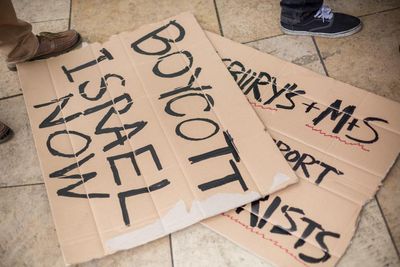 BOYCOTT
ISRAEL
NOW
BURYS + M+S
PORT